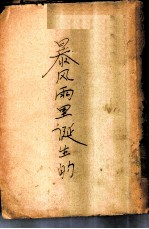 暴风雨里诞生的